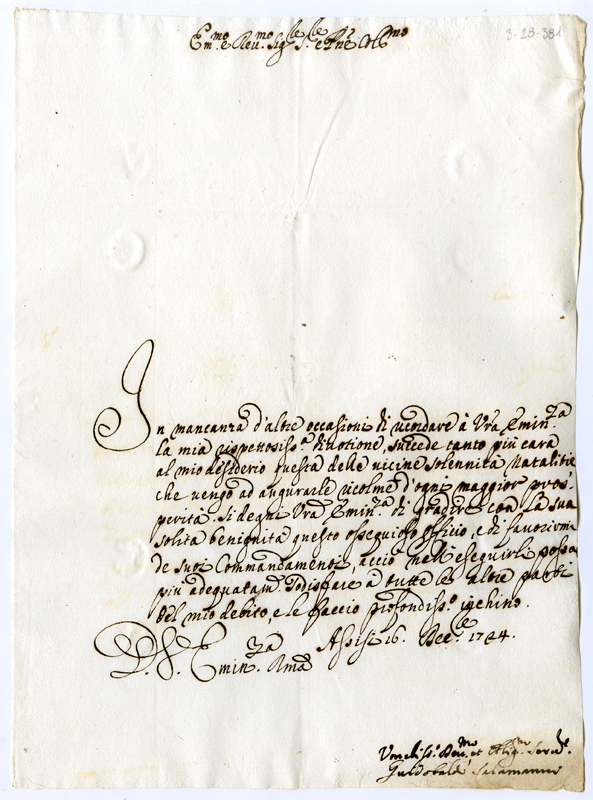 3-23-381
Em.mo e Reu.mo Sig.re S.re e Pne Col.mo
In mancanza d'altre occasioni di ricordare à Vrã Emin.za
la mia rispettosiss.a diuotione, succede tanto più cara
al mio desiderio questa delle uicine solennità Natalitie
che uengo ad augurarle ricolme d'ogni maggior pros-
perità. Si degni Vrã Emin.za di gradire con la sua
solita benignità questo ossequioso officio, e di fauorirmi
de suoi Commandamenti, acciò nell'eseguirli possa
più adequatam.te sodisfare à tutte le altre parti
del mio debito, e le faccio profondiss.o inchino.
D. V. Emin.za Rmã Assisi 16. Dec.e 1724.
Vmiliss.o Deu.mo et Oblig.mo Serud.e
Guidobald